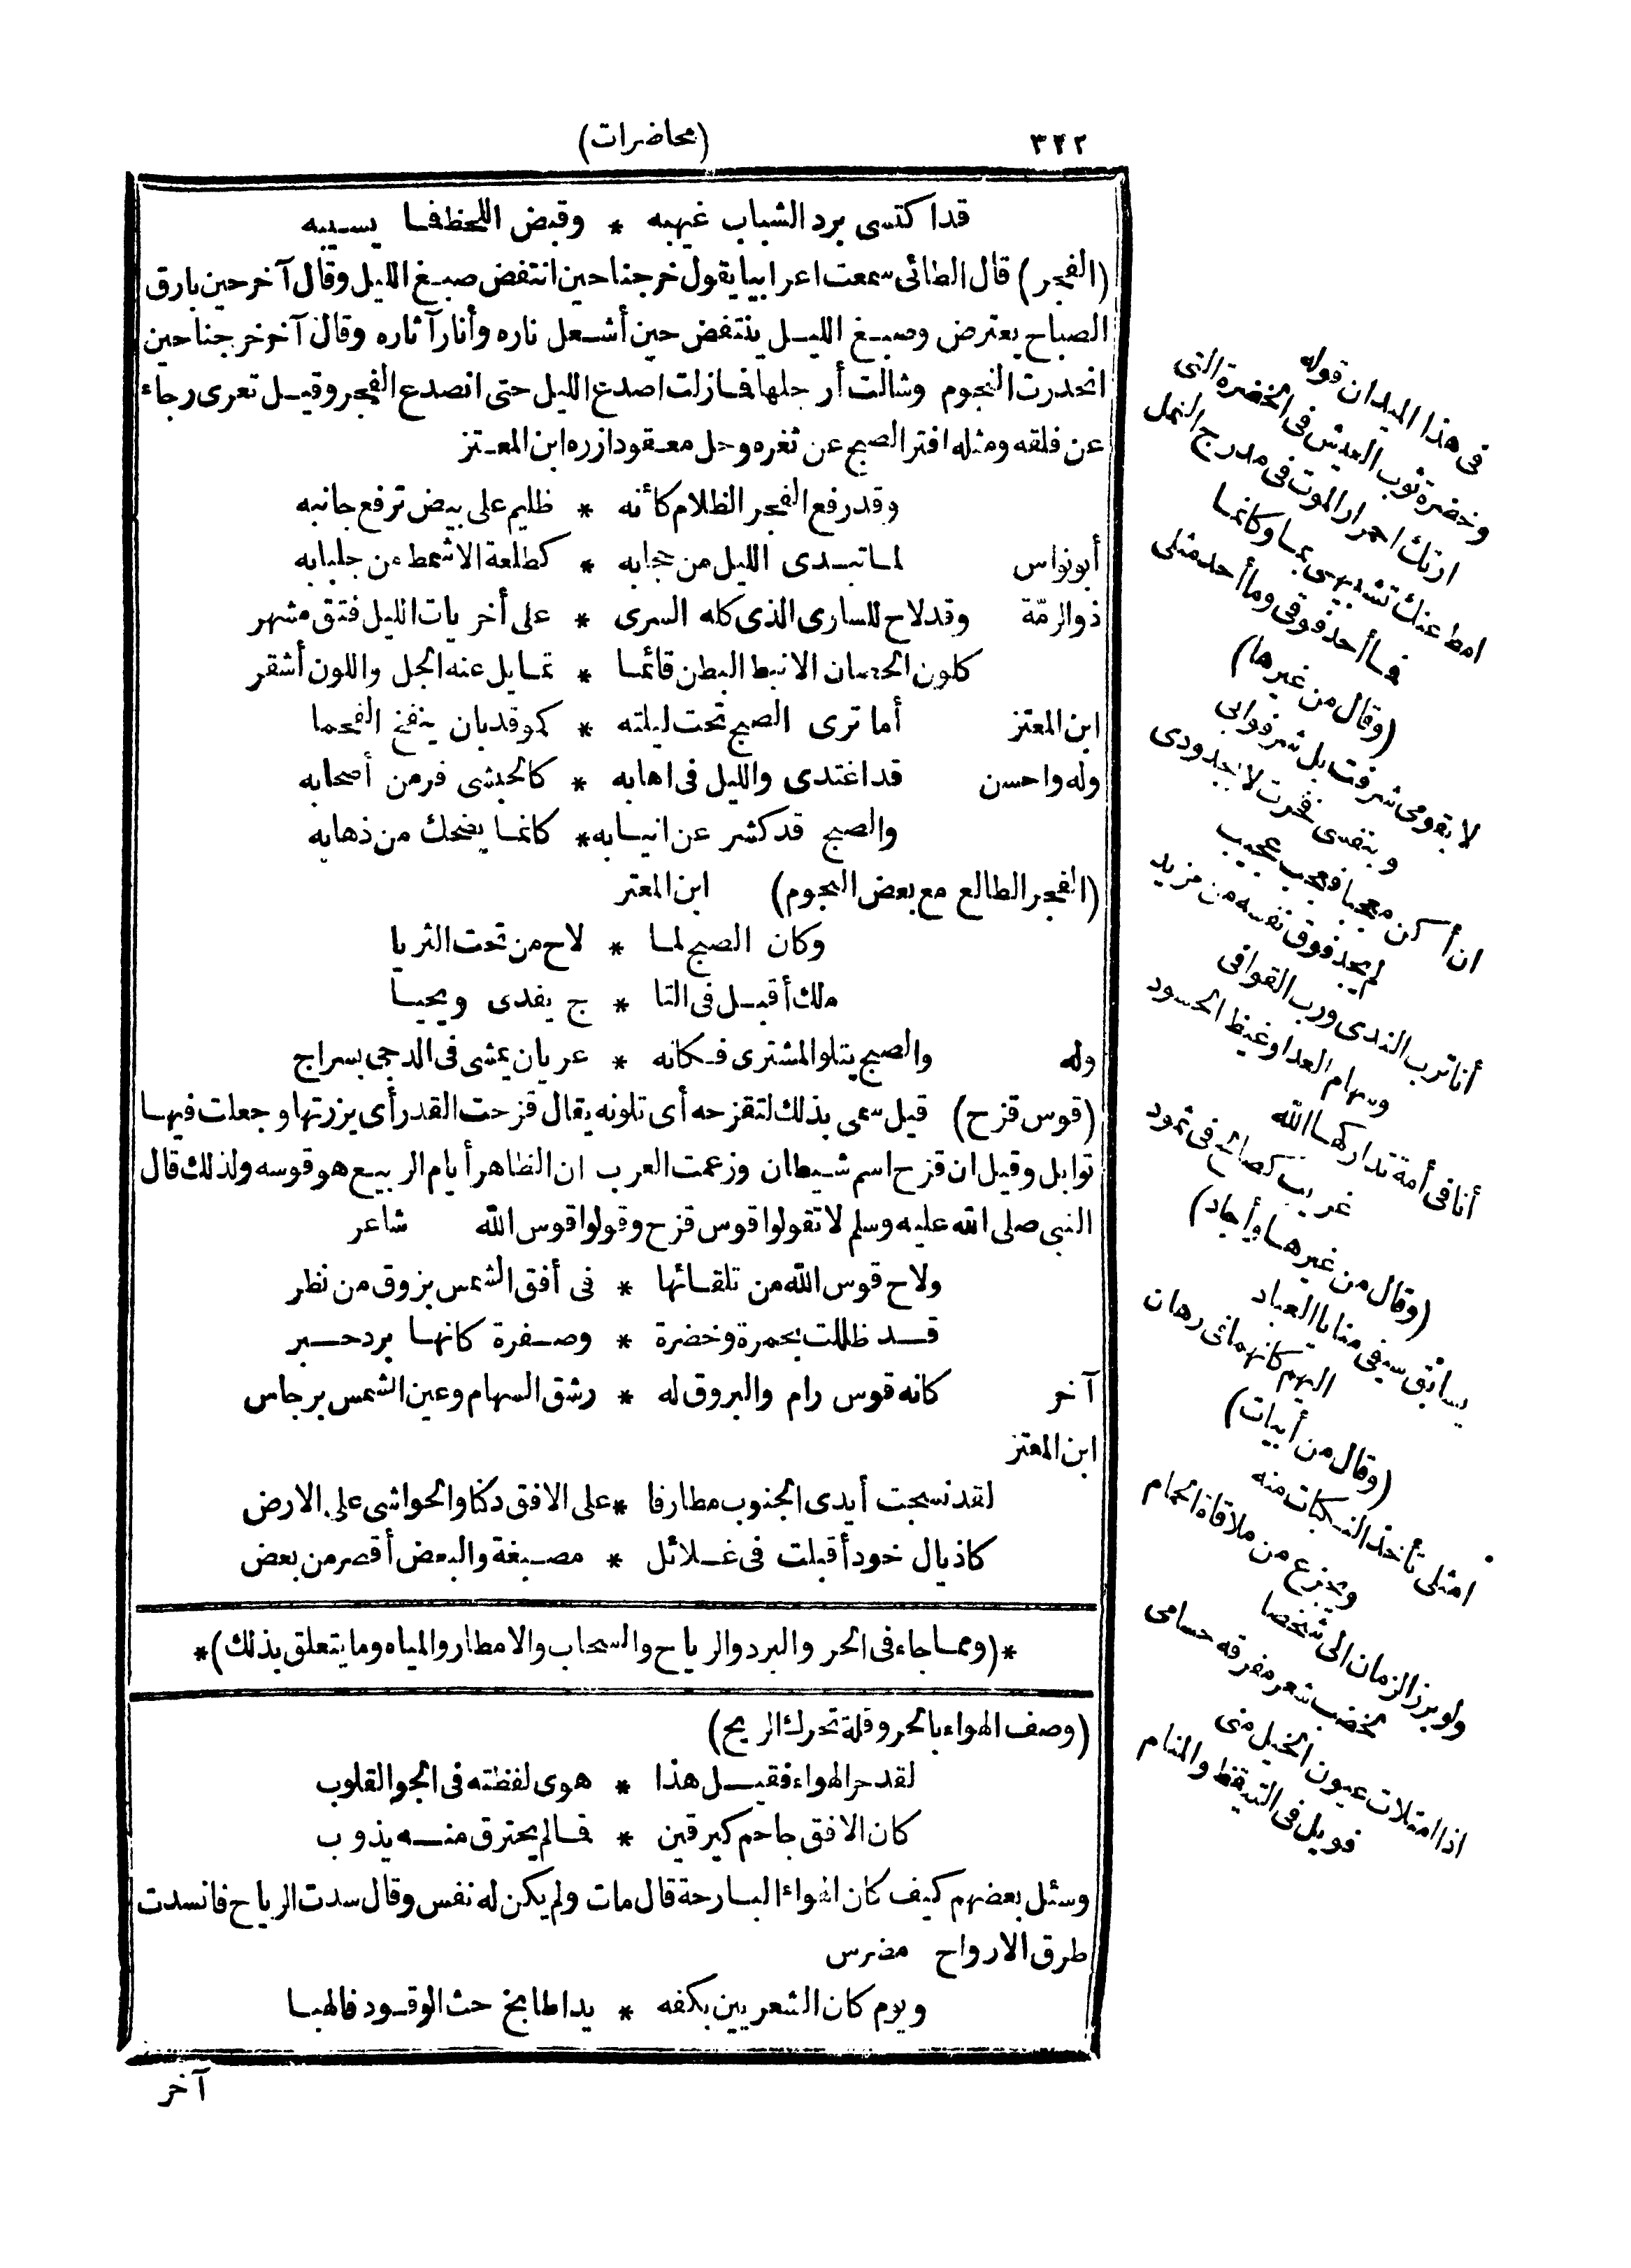 ٣٤٢
(محاضرات)
قد اكتسى برد الشباب غيهبه * وقبض اللحظ فما يسيبه
(الفجر) قال الطائى سمعت اعرابيا يقول خرجنا حين انتفض صبغ الليل وقال آخر حين بارق
الصباح يعترض وصبغ الليل ينتفض حين أشعل ناره وأنار آثاره وقال آخر خرجنا حين
انحدرت النجوم وشالت أرجلها فمازلت اصدع الليل حتى انصدع الفجر وقيل تعرى رجاء
عن فلقه ومثله افتر الصبح عن ثغره وحل معقود ازره ابن المعتز
وقد رفع الفجر الظلام كأنه * ظليم على بيض ترفع جانبه
أبو نواس لما تبدى الليل من حجابه * كطلعة الاشمط من جلبابه
ذو الرمّة وقد لاح للسارى الذى كله السرى * على أخريات الليل فتق مشهر
كلون الحصان الانبط البطن قائما * تمايل عنه الجل واللون أشقر
ابن المعتز أما ترى الصبح تحت ليلته * كموقد بان ينفخ الفحما
وله واحسن قد اغتدى والليل فى اهابه * كالحبشى فر من أصحابه
والصبح قد كشر عن انيابه * كانما يضحك من ذهابه
(الفجر الطالع مع بعض النجوم) ابن المعتز
وكان الصبح لما * لاح من تحت الثريا
ملك أقبل فى التا * ج يفدى ويحيا
وله والصبح يتلو المشترى فكانه * عريان يمشى فى الدجى بسراج
(قوس قزح) قيل سمى بذلك لتقزحه أى تلونه يقال قزحت القدر أى بزرتها وجعلت فيها
توابل وقيل ان قزح اسم شيطان وزعمت العرب ان الظاهر أيام الربيع هو قوسه ولذلك قال
النبى صلى الله عليه وسلم لا تقولوا قوس قزح وقولوا قوس الله شاعر
ولاح قوس الله من تلقائها * فى أفق الشمس بزوق من نظر
قد ظللت بحمرة وخضرة * وصفرة كانها برد حبر
آخر كانه قوس رام والبروق له * رشق السهام وعين الشمس برجاس
ابن المعتز
لقد نسجت أيدى الجنوب مطارفا * على الافق دكنا والحواشى على الارض
كاذيال خود أقبلت فى غلائل * مصبغة والبعض أقصر من بعض
*(ومما جاء فى الحر والبرد والرياح والسحاب والامطار والمياه وما يتعلق بذلك)*
(وصف الهواء بالحر وقلة تحرك الريح)
لقد حر الهواء فقيل هذا * هوى لفظته فى الجو القلوب
كان الافق جاحم كير قين * فما لم يحترق منه يذوب
وسئل بعضهم كيف كان الهواء البارحة قال مات ولم يكن له نفس وقال سدت الرياح فانسدت
طرق الارواح مضرس
ويوم كان الشعريين بكفه * يدا طابخ حث الوقود فالهبا
آخر
فى هذا الميدان قوله
وخضرة ثوب العيش فى الخضرة التى
ارتك احمرار الموت فى مدرج النمل
امط عنك تشبيهى بما وكانما
فما أحد فوقى وما أحد مثلى
(وقال من غيرها)
لا بقومى شرفت بل شرفوا بى
وبنفسى فخرت لا بجدودى
ان أكن معجبا فعجب عجيب
لم يجد فوق نفسه من مزيد
أنا ترب الندى ورب القوافى
وسهام العدا وغيظ الحسود
أنا فى أمة تداركها الله
غريب كصالح فى ثمود
(وقال من غيرها وأجاد)
يسابق سيفى منايا العباد
اليهم كانهما فى رهان
(وقال من أبيات)
امثلى تأخذ النكبات منه
ويجزع من ملاقاة الحمام
ولو برز الزمان الى شخصا
لخضب شعر مفرقه حسامى
اذا امتلات عيون الخيل منى
فويل فى التيقظ والمنام